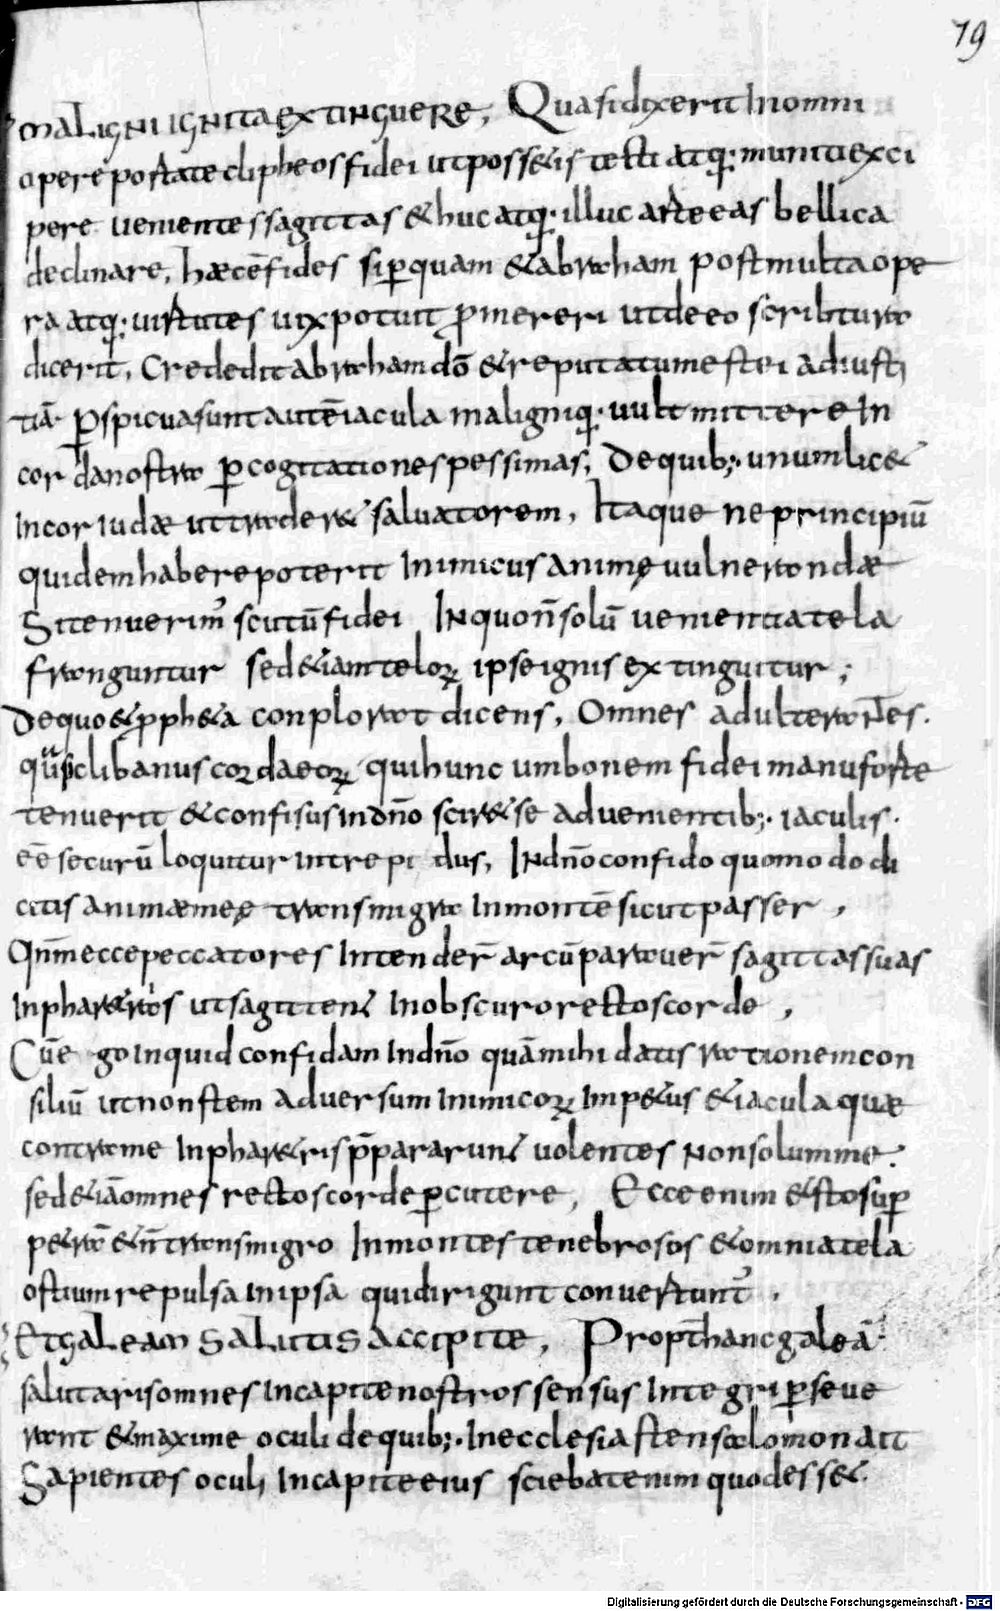 19
maligni ignita extinguere, Quasi dixerit In omni
opere portate clipheos fidei ut possetis tecti atq: muniti exci
pere uenientes sagittas & huc atq: illuc arte eas bellica
declinare, haec ē fides si p̱ quam & abraham post multa ope
ra atq: uirtutes uix potuit ꝓmereri ut de eo scribtura
dicerit, Credidit abraham dō & reputatum est ei ad iusti
tiā p̱spicua sunt autē iacula maligniq: uult mittere In
corda nostra p̱ cogitationes pessimas, De quib;· unum licet
In cor iudae ut traderet saluatorem, Itaque ne principiū
quidem habere poterit Inimicus animę uulnerandae
Si tenuerim' scutū fidei In quo ñ solū uenientia tela
franguntur sed etiam teloꝝ ipse ignis extinguitur;
De quo & ꝓpheta conplorat dicens, Omnes adulterantes.
quasi clibanus corda eoꝝ qui hunc umbonem fidei manu forte
tenuerit & confisus in dño sciret se aduenientib;· iaculis·
eē securū loquitur intrepidus, In dño confido quomodo di
citis animae meę transmigra In montē sicut passer,
Qnm ecce peccatores Intender̄ arcū parauer̄ sagittas suas
In pharetris ut sagittent In obscuro rectos corde,
Cū ego inquid confidam In dño quā mihi datis rationem con
siliū ut non stem aduersum Inimicoꝝ Impetus & iacula quae
contra me In pharetris p̄pararunt uolentes non solum me·
sed etiā omnes rectos corde p̱cutere, Ecce enim & sto sup̱
petrā & ñ transmigro In montes tenebrosos & omnia tela
ostium repulsa In ipsa qui dirigunt conuertunt',
Et galeam salutis accipite, Propt̄ hanc galeā
salutaris omnes In capite nostro sensus Integri p̱seue
rant & maxime oculi de quib;· In ecclesiasten salomon ait
Sapientes oculi In capite eius sciebat enim quod esset
Digitalisierung gefördert durch die Deutsche Forschungsgemeinschaft - DFG